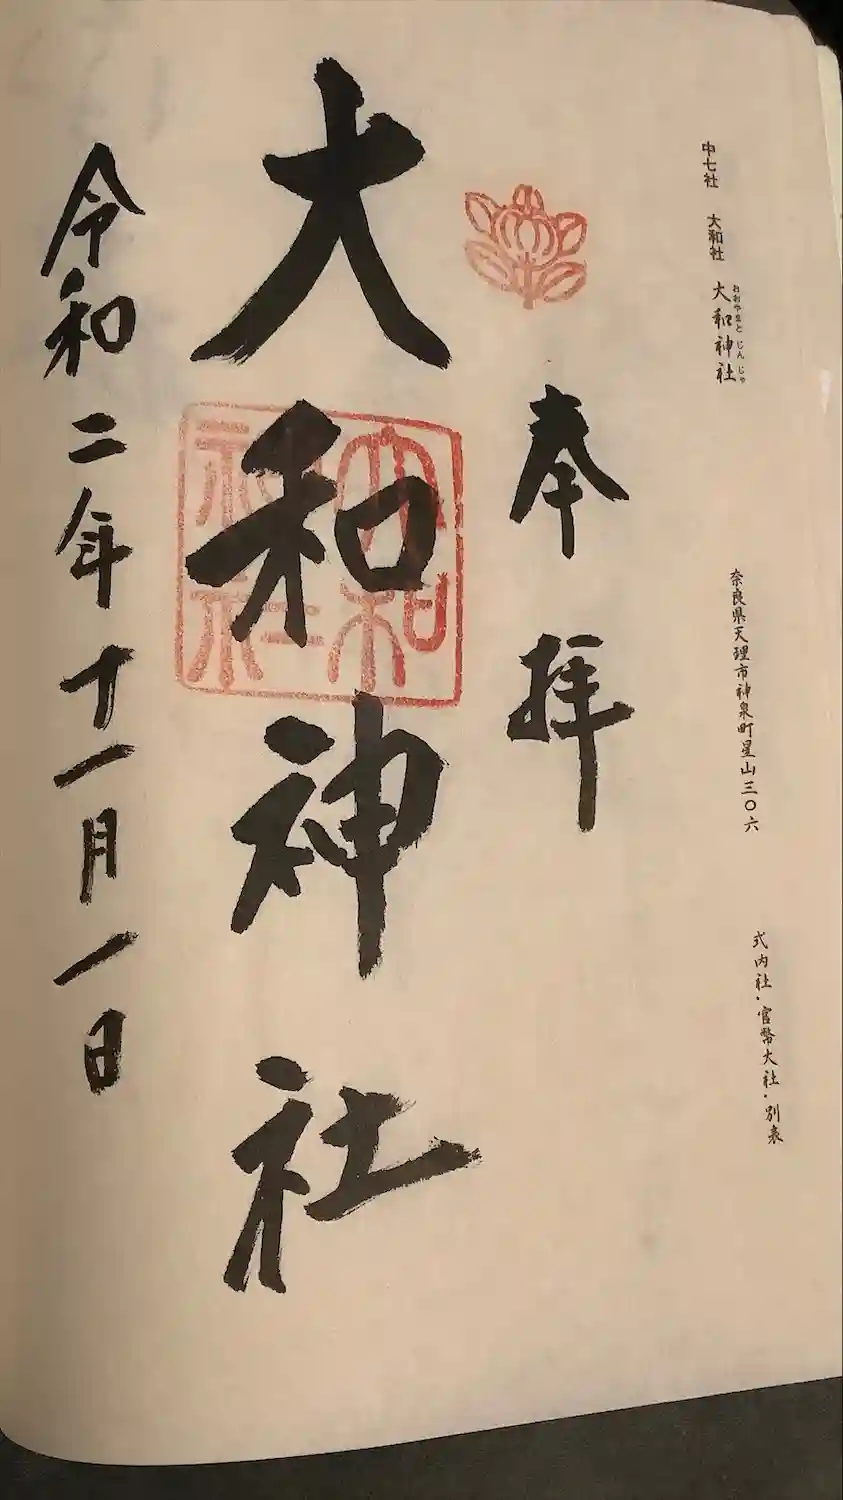 中七社 大和社 大和神社
おおやまと じんじゃ
奈良県天理市神泉町星山三〇六
式内社・官幣大社・別表
奉拝
大和神社
大和神社
令和二年十一月一日